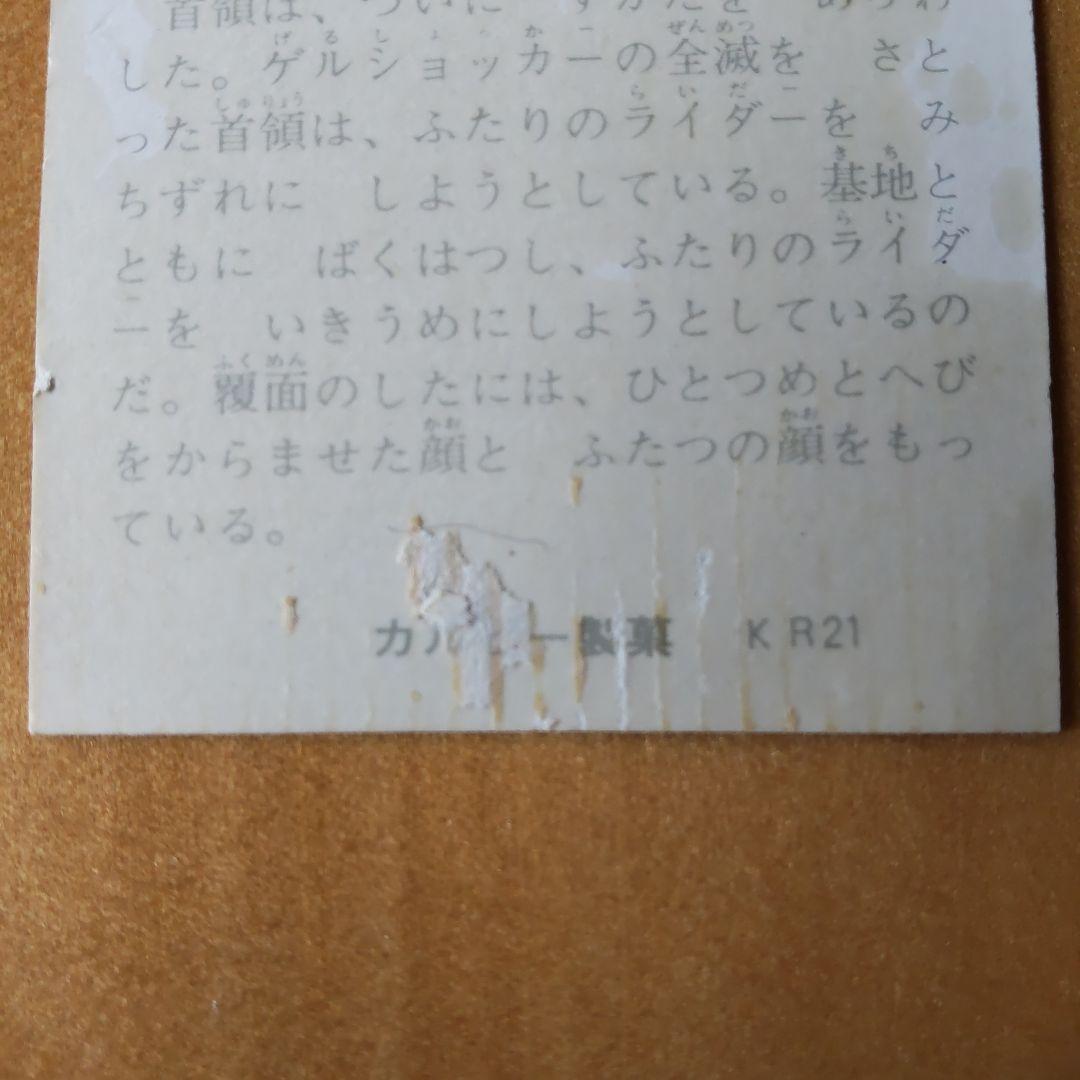 首領は、ついに すがたを
した。ゲルショッカーの全滅を さと
った首領は、ふたりのライダーを み
ちずれに しようとしている。基地と
ともに ばくはつし、ふたりのライダ
ーを いきうめにしようとしているの
だ。覆面のしたには、ひとつめとへび
をからませた顔と ふたつの顔をもっ
ている。
カルビー製菓 KR21